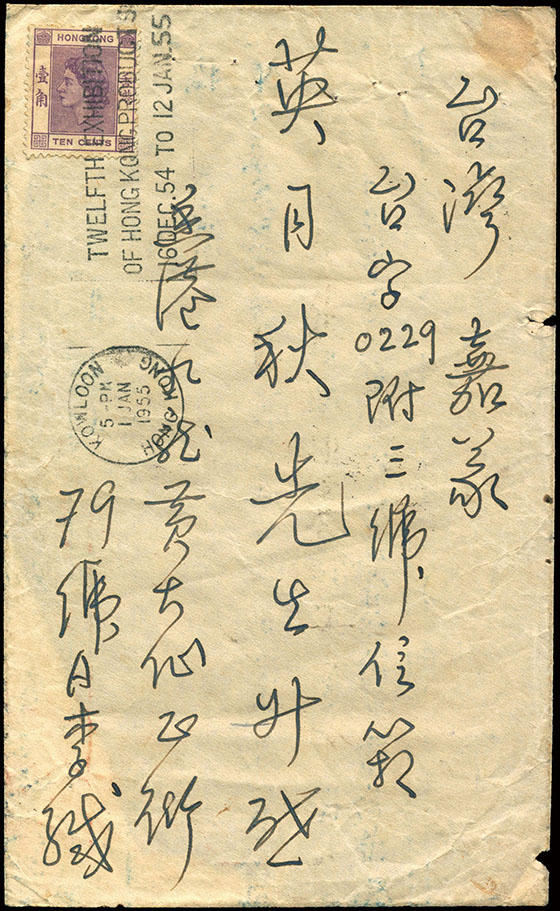 台灣嘉義
台字0229附三號信箱
英月秋先生升啟
香港九龍黃大仙正街
79號A李緘
HONG KONG
壹角
TEN CENTS
TWELFTH EXHIBITION
OF HONG KONG PRODUCTS
16 DEC. 54 TO 12 JAN. 55
KOWLOON
5 - PM
1 JAN
1955
HONG KONG